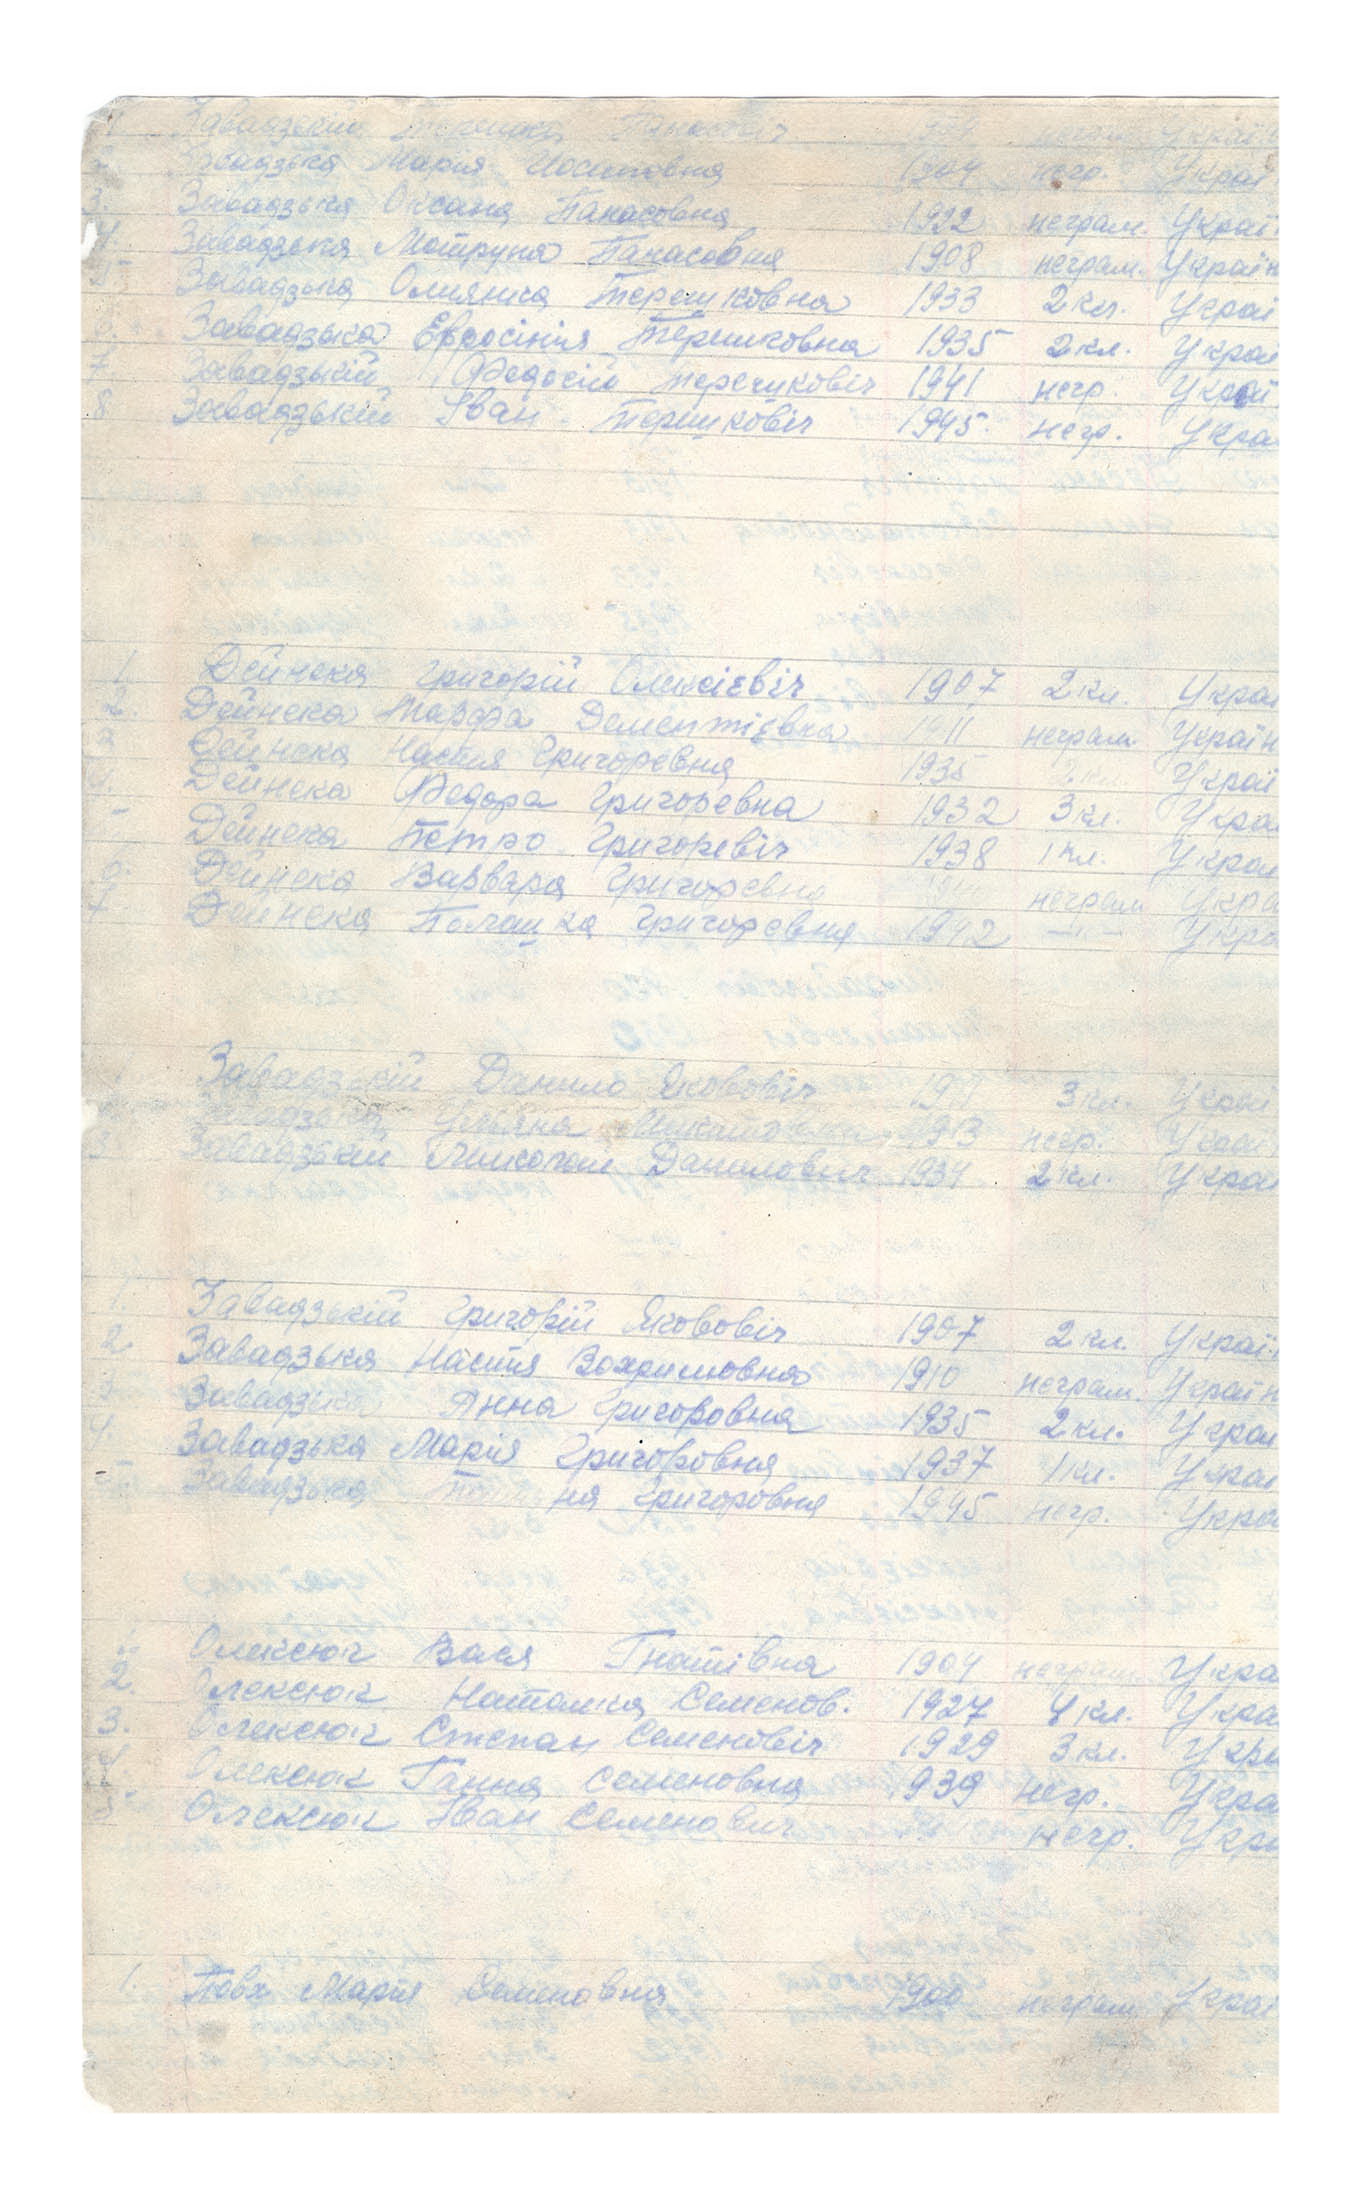 1 Завадзький Терешко Панасовіч неграм Украї
Завадзька Марія Иосиповна 1904 негр. Украї
3. Завадзька Оксана Панасовна 1922 неграм. Украї
4. Завадзька Мотруна Панасовна 1908 неграм. Україн
5 Завадзька Олиянка Терешковна 1933 2 кл. Украї
6. Завадзька Евдосінія Терешковна 1935 2 кл. Украї
7 Завадзький Федосій Терешковіч 1941 негр. Украї
8 Завадзький Іван Терешковіч 1945. негр. Украї
1. Дейнека Григорій Олексієвіч 1907 2 кл. Украї
2. Дейнека Тодора Дементієвна 1911 неграм. Україн
3 Дейнека Настя Григоревна 1935 2 кл. Украї
4. Дейнека Федора Григоревна 1932 3 кл. Украї
5 Дейнека Петро Григоревіч 1938 1 кл. Украї
6. Дейнека Варвара Григоревна неграм Укра
7 Дейнека Полашка Григоревна 1942 —"— Укра
Завадзській Данило Яковович 3 кл. Украї
Завадзька Уляна 1913 негр. Украї
3 Завадзький Миколай Данилович 1934 2 кл. Украї
1. Завадзській Григорій Яковович 1907 2 кл. Украї
2. Завадзька Настя Вохримовна 1910 неграм. Україн
3 Завадзька Анна Григоровна 1935 2 кл. Украї
4. Завадзька Марія Григоровна 1937 1 кл. Украї
5 Завадзька Григоровна 1945 негр. Украї
1. Олексюк Вася Гнатівна 1904 неграм. Укра
2. Олексюк Наталка Семенов. 1927 4 кл. Укра
3. Олексюк Степан Семеновіч 1929 3 кл. Укра
4. Олексюк Ганна Семеновна 1939 негр. Укра
5 Олексюк Іван Семенович негр. Укра
1. Повх Марія Семеновна 1900 неграм Украї